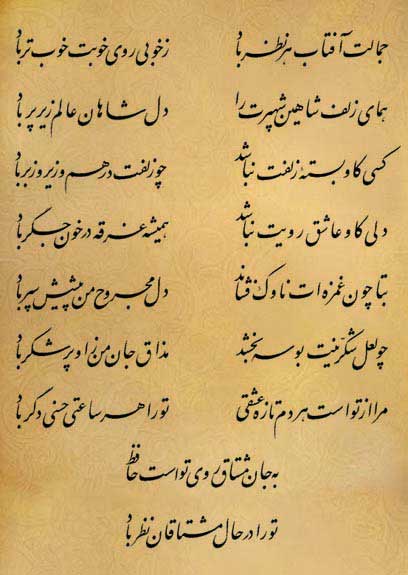 جمالت آفتاب هر نظر باد ز خوبی روی خوبت خوب تر باد
همای زلف شاهین شهپرت را دل شاهان عالم زیر پر باد
کسی کاو بستهٔ زلفت نباشد چو زلفت در هم و زیر و زبر باد
دلی کاو عاشق رویت نباشد همیشه غرقه در خون جگر باد
بتا چون غمزه ات ناوک فشاند دل مجروح من پیشش سپر باد
چو لعل شکرینت بوسه بخشد مذاق جان من ز او پر شکر باد
مرا از تو است هر دم تازه عشقی تو را هر ساعتی حسنی دگر باد
به جان مشتاق روی تو است حافظ
تو را در حال مشتاقان نظر باد